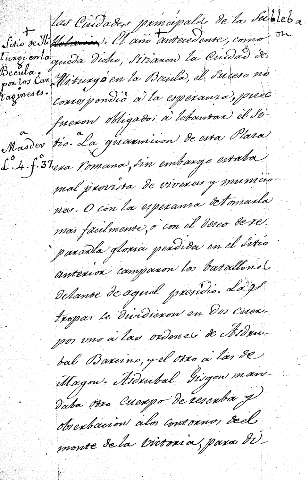 las Ciudades principales de la Sub
leba
on
+
Sitio de Ili
turgi en la
o
Becula
por los Car
tagineses.
El año + antecedente, como
queda dicho, sitiaron la Ciudad de
Iliturgi en la Becula, el suceso no
correspondió á la esperanza, pues
fueron obligados á lebantar el Se
tio. a La guarnicion de esta Plaza
era Romana, sin embargo estaba
mal provista de viveres y municio
nes. O con la esperanza de tomarla
mas facilmente, o con el deseo de re
parar la gloria perdida en el sitio
anterior camparon los batallones
delante de aquel presidio. Las
tropas se dividieron en dos cuer
pos uno á las ordenes de Asdru
bal Barcino, y el otro á las de
Magon. Asdrubal Gisgon man
daba otro Cuerpo de reserba y
obserbacion a los contornos del
monte de la Victoria, para de
a
Masdeu
t.º 4. f.º 37